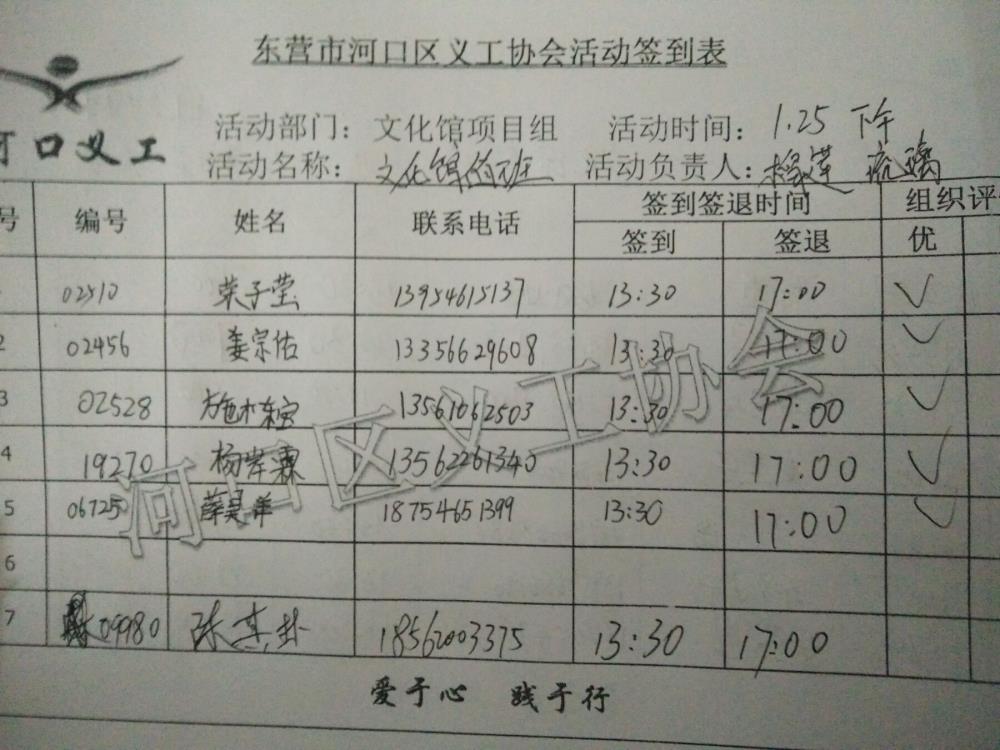 东营市河口区义工协会活动签到表
河口义工
活动部门：文化馆项目组 活动时间：1.25 下午
活动名称：文化馆值班 活动负责人：
号 编号 姓名 联系电话 签到签退时间 组织评
签到 签退 优
02510 荣子莹 13954615137 13:30 17:00 ✓
2 02456 姜宗佑 13356629608 13:30 17:00 ✓
3 02528 13561062503 13:30 17:00 ✓
4 19270 杨岸霖 13562261340 13:30 17:00 ✓
5 06725 薛昊洋 18754651399 13:30 17:00 ✓
6
7 09980 张其 18562003375 13:30 17:00
爱于心 践于行
河口区义工协会